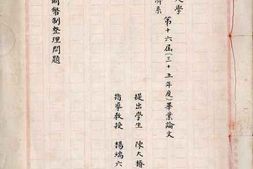 大學
濟系 第十六屆(三十五年度)畢業論文
提出學生 陳文
指導教授 楊端六
幣制整理問題